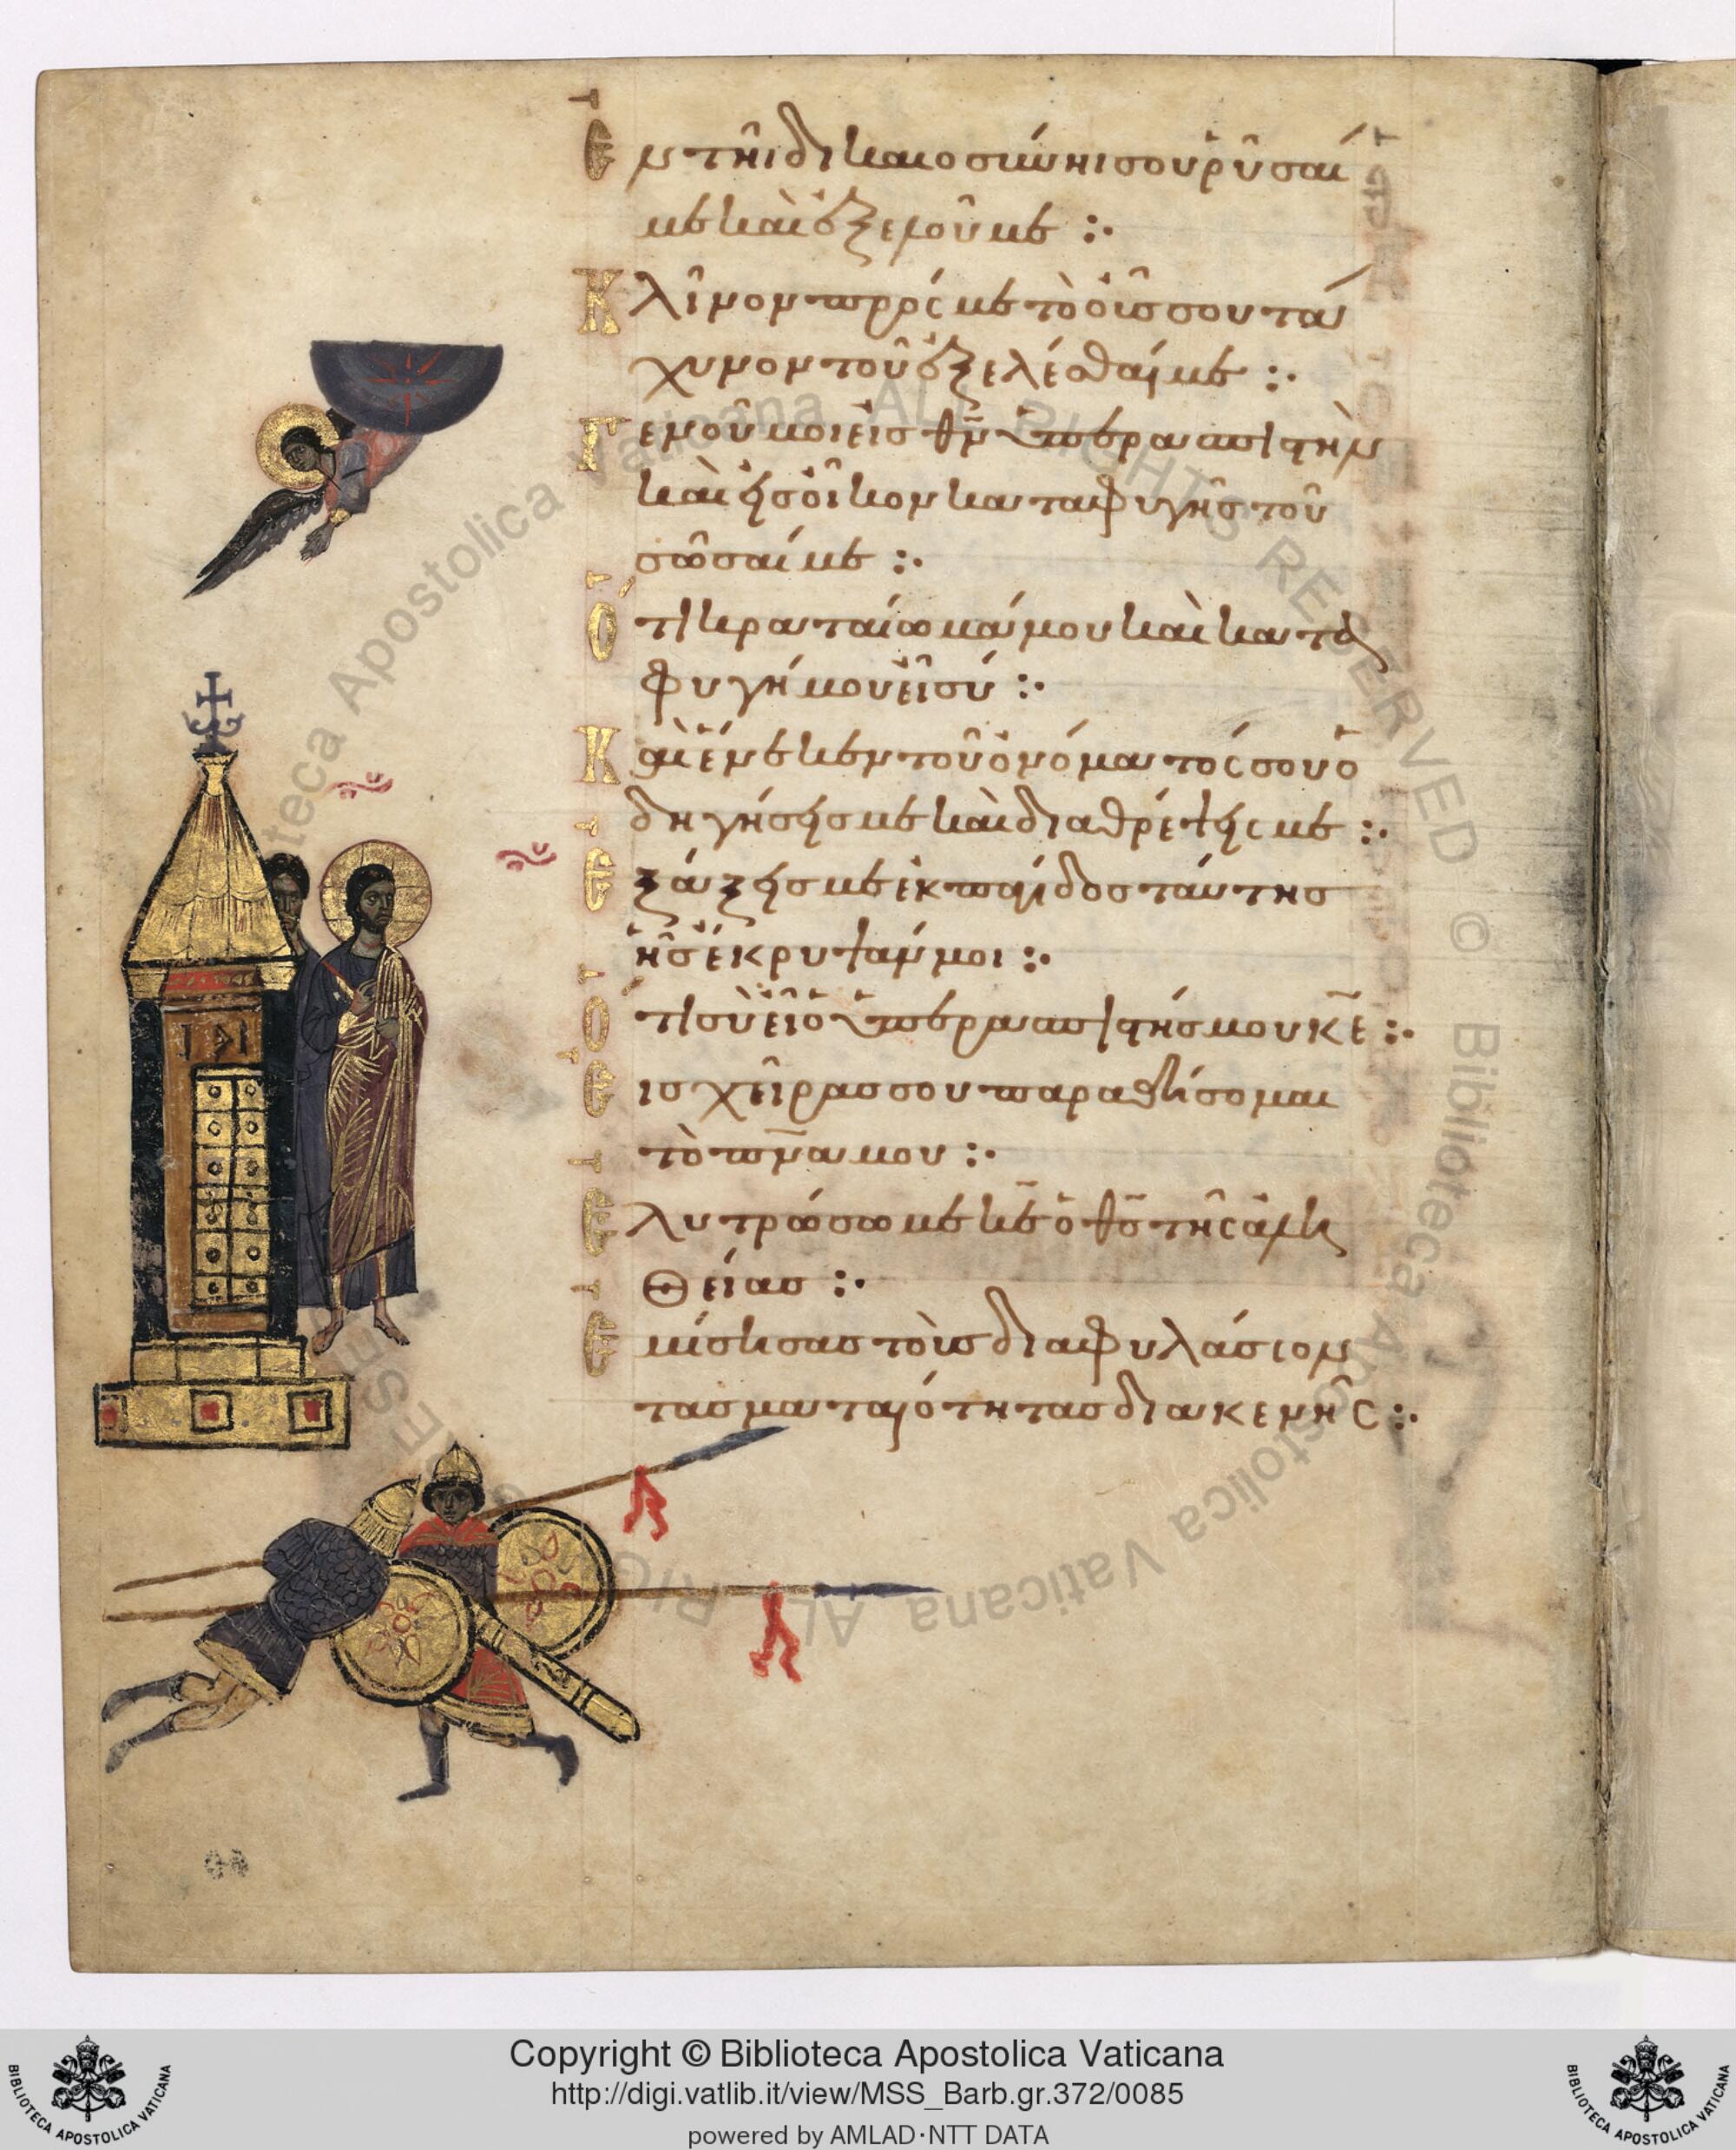 Ἐν τῆι δικαιοσύνηι σου ῥῦσαί
με καὶ ἐξελοῦ με :·
Κλῖνον πρός με τὸ οὖς σου τά
χυνον τοῦ ἐξελέσθαι με :·
Γενοῦ μοι εἰς θν̄ ὑπερασπιστὴν
καὶ εἰς οἶκον καταφυγῆς τοῦ
σῶσαί με :·
Ὅτι κραταίωμά μου καὶ κατα
φυγή μου εἶ σύ :·
Καὶ ἕνεκεν τοῦ ὀνόματός σου ὁ
δηγήσεις με καὶ διαθρέψεις με :·
Ἐξάξεις με ἐκ παγίδος ταύτης
ἧς ἔκρυψάν μοι :·
Ὅτι σὺ εἶ ὁ ὑπερασπιστής μου κε̄ :·
Εἰς χεῖράς σου παραθήσομαι
τὸ πν̄α μου :·
Ἐλυτρώσω με κε̄ ὁ θς̄ τῆς ἀλη
θείας :·
Ἐμίσησας τοὺς διαφυλάσσον
τας ματαιότητας διακενῆς :·
Biblioteca Apostolica Vaticana ALL RIGHTS RESERVED © Biblioteca Apostolica Vaticana ALL RIGHTS RESERVED
Copyright © Biblioteca Apostolica Vaticana
http://digi.vatlib.it/view/MSS_Barb.gr.372/0085
powered by AMLAD·NTT DATA
BIBLIOTECA APOSTOLICA VATICANA
BIBLIOTECA APOSTOLICA VATICANA